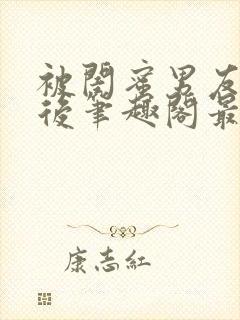 被閨蜜男友
後筆趣閣最
康志紅